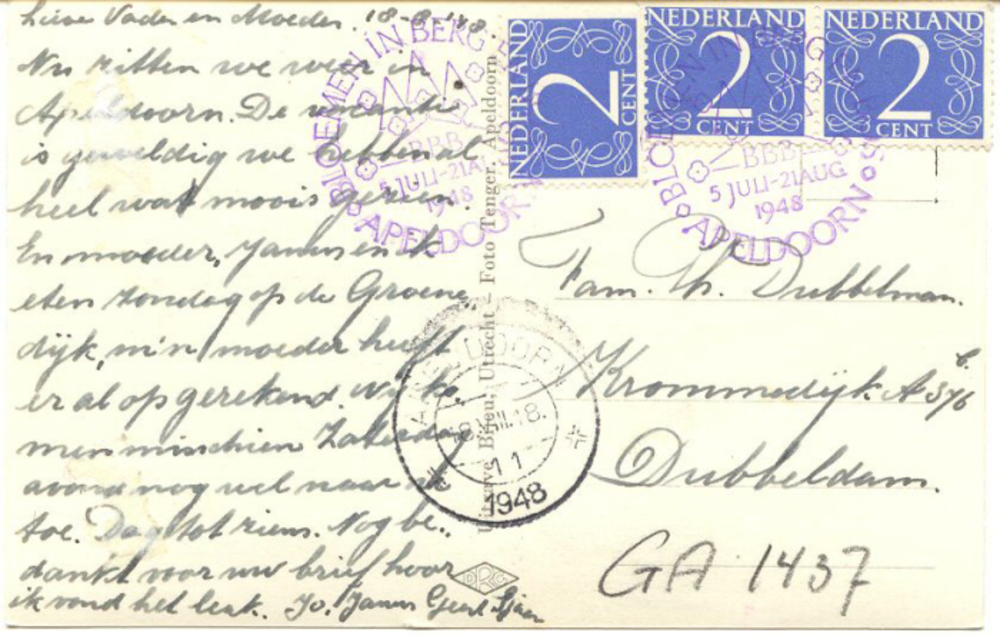 Lieve Vader en Moeder. 18-8-'48.
Nu zitten we weer in
Apeldoorn. De vacantie
is geweldig we hebben al
heel wat moois gezien.
En moeder, Janus en ik
eten Zondag op de Groene
dijk, m'n moeder heeft
er al op gerekend. Wij ko-
men misschien Zaterdag
avond nog wel naar
toe. Dag tot ziens. Nog be-
dankt voor uw brief hoor
ik vond het leuk. Jo. Janus Geert
NEDERLAND
2
CENT
NEDERLAND
2
CENT
NEDERLAND
2
CENT
BLOEMEN IN BERG
BBB
5 JULI-21 AUG
1948
APELDOORN
BBB
5 JULI-21 AUG
1948
APELDOORN
Utrecht - Foto Tenger, Apeldoorn
APELDOORN
18.VIII.48.
11
1948
Fam. Th. Dubbelman.
Krommedijk A 376
Dubbeldam.
GA 1437
DRG